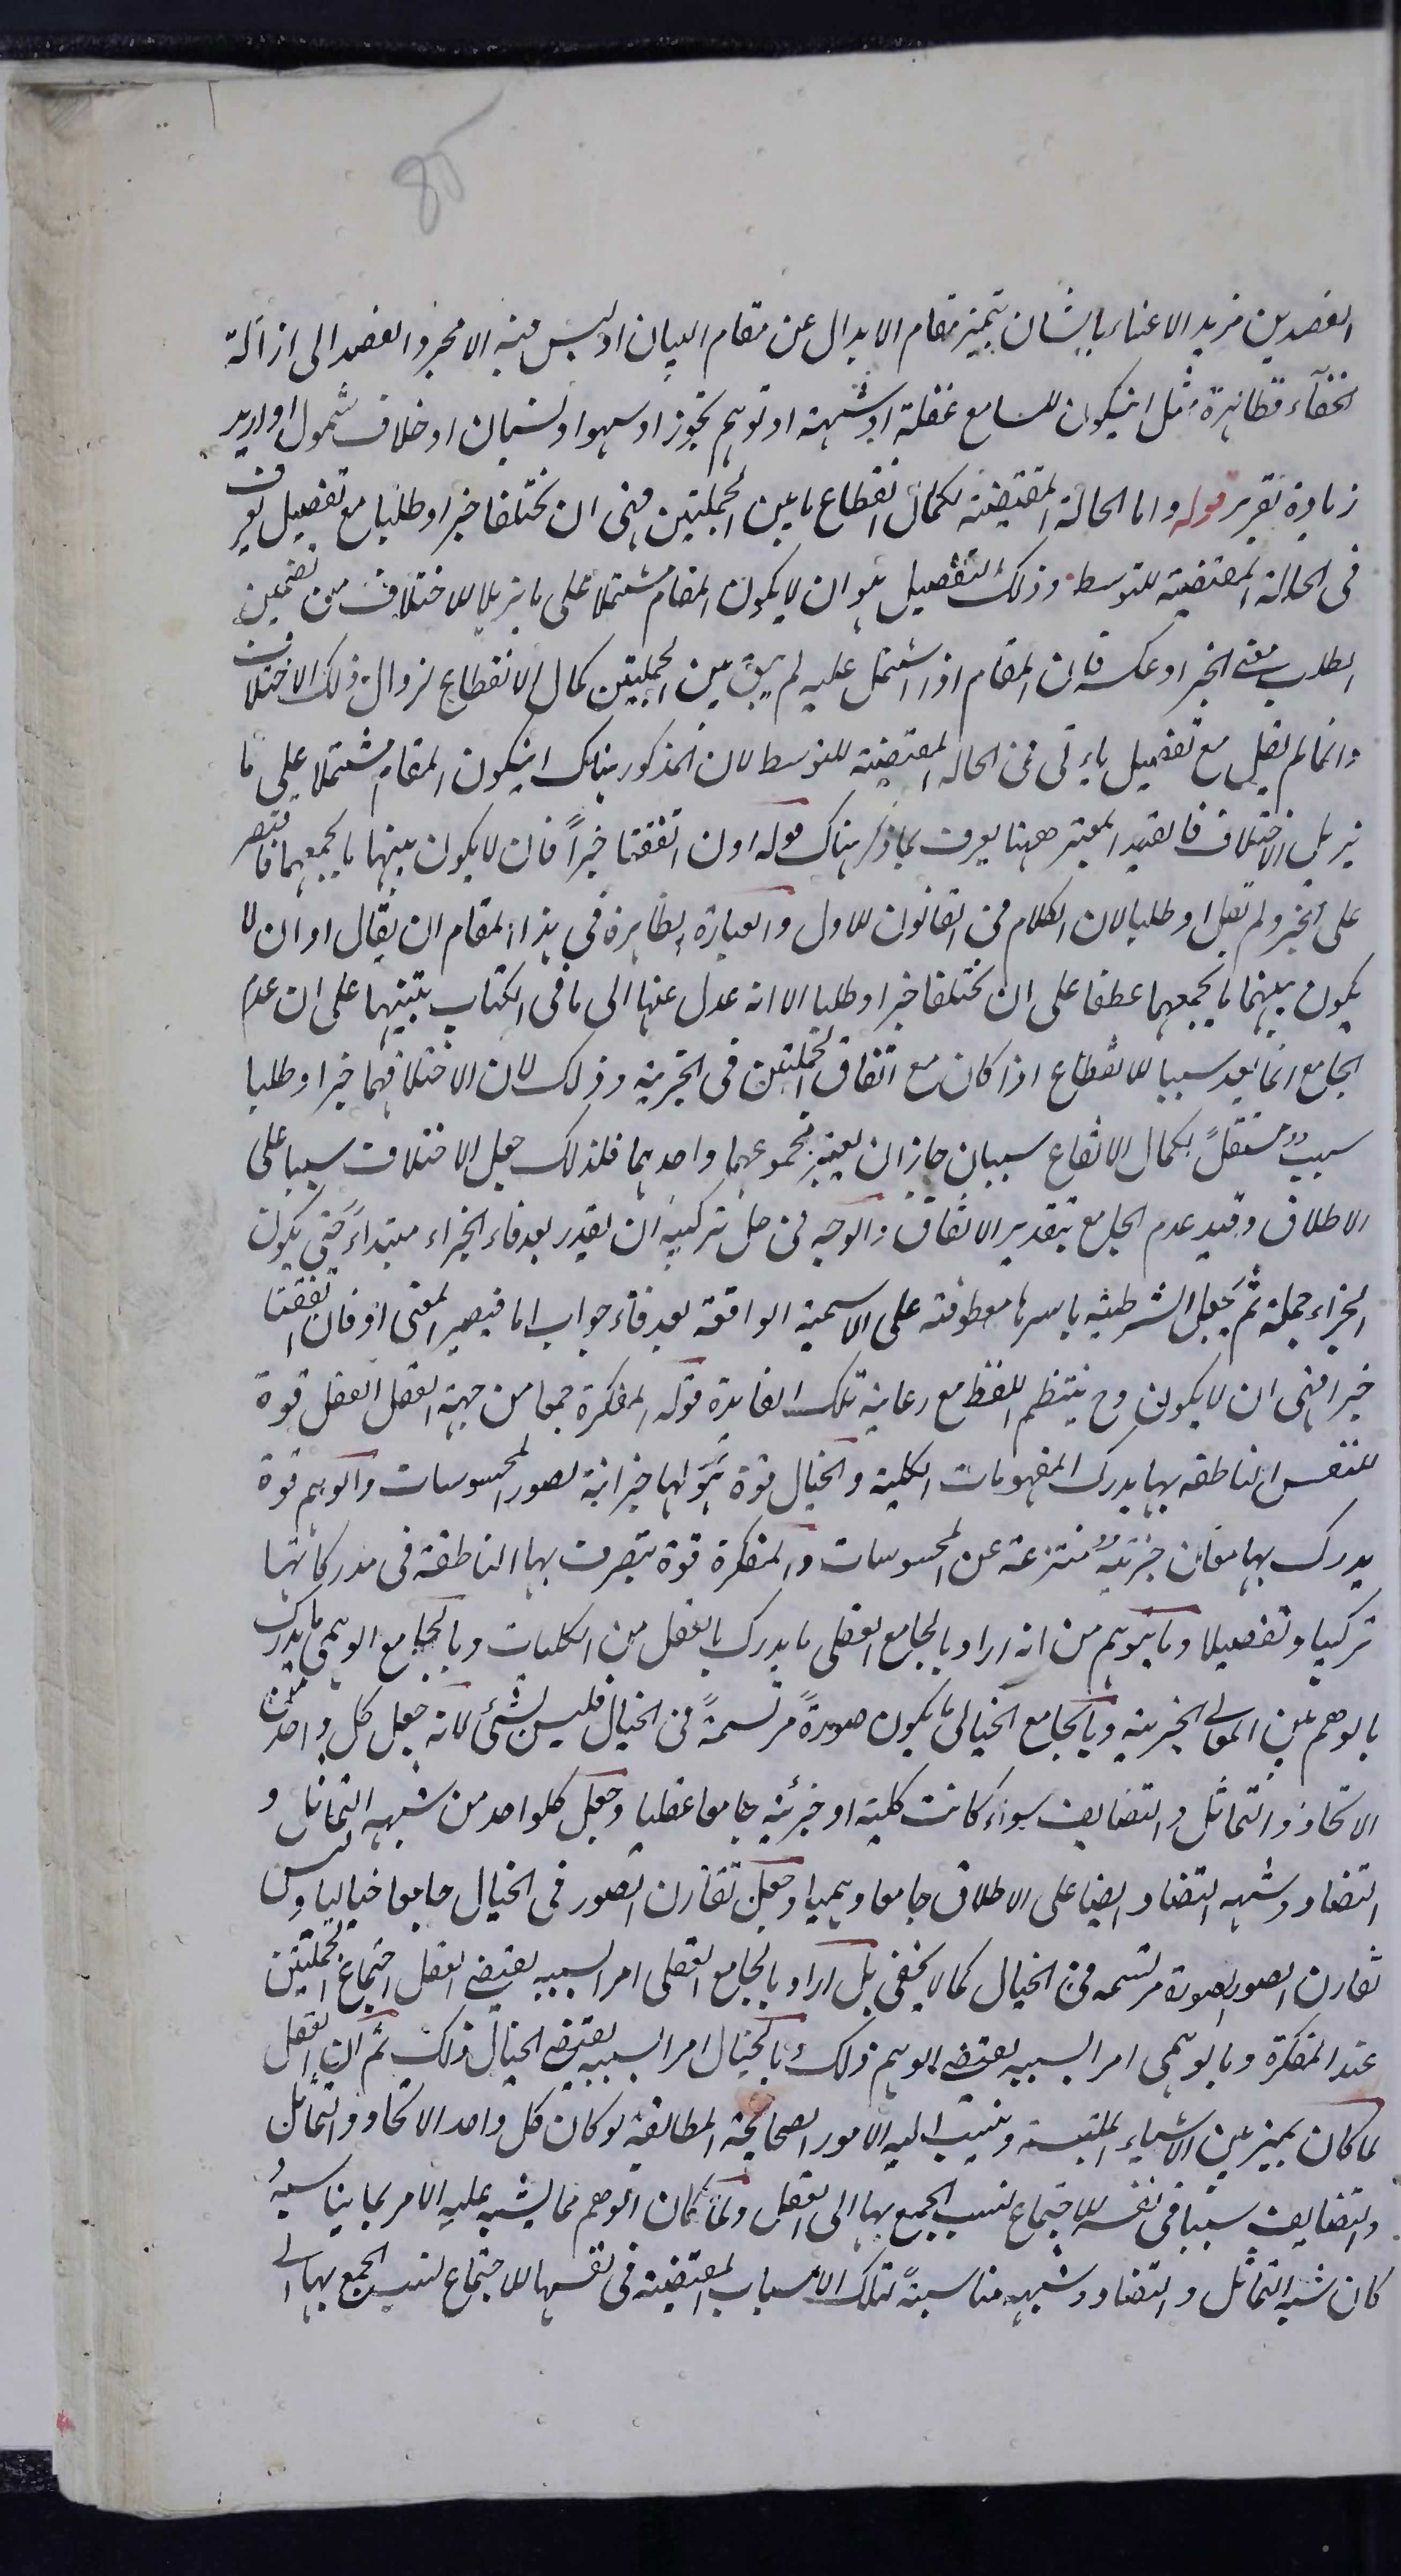 85
القصدين مزيد الاعتناء بالشان يتميز مقام الابدال عن مقام البيان اذ ليس فيه الا مجرد القصد الى ازالة
الخفآء قظاهرة مثل ان يكون للسامع غفلة او شبهة او توهم تجوز او سهو او نسيان او خلاف شمول او اريد
زيادة تقرير قوله واما الحالة المقتضية لكمال انقطاع ما بين الجملتين فهى ان تختلفا خبرا وطلبا مع تفصيل يعرف
فى الحالة المقتضية للتوسط وذلك التفصيل هو ان لا يكون المقام مشتملا على ما يزيل الاختلاف من تضمين
الطلب معنى الخبر او عكسه فان المقام اذا اشتمل عليه لم يبق بين الجملتين كمال الانقطاع لزوال ذلك الاختلاف
وانما لم يقل مع تفصيل ياتى فى الحالة المقتضية للتوسط لان المذكور هناك ان يكون المقام مشتملا على ما
يزيل الاختلاف فالقيد المعتبر ههنا يعرف بما ذكر هناك قوله او ان اتفقتا خبراً فان لا يكون بينهما ما يجمعهما فاقتصر
على الخبر ولم يقل او طلبا لان الكلام فى القانون للاول والعبارة الظاهرة فى هذا المقام ان يقال او ان لا
يكون بينهما ما يجمعهما عطفا على ان تختلفا خبرا وطلبا الا انه عدل عنها الى ما فى الكتاب تنبيها على ان عدم
الجامع انما يعد سببا للانقطاع اذا كان مع اتفاق الجملتين فى الخبرية وذلك لان الاختلافهما خبرا وطلبا
سببٌ مستقلٌ لكمال الانقطاع سببان جاز ان يعتبر مجموعهما واحدهما فلذلك جعل الاختلاف سببا على
الاطلاق وقيد عدم الجامع بتقدير الاتفاق والوجه فى حل تركيبه ان يقدر بعد فاء الجزاء مبتداءً حتى يكون
الجزاء جملة ثم يجعل الشرطية باسرها معطوفة على الاسمية الواقعة بعد فاء جواب اما فيصير المعنى او فان اتفقتا
خبرا فهى ان لا يكون وح ينتظم اللفظ مع رعاية تلك الفايدة قوله المفكرة جمعا من جهة العقل العقل قوة
للنفس الناطقه بها يدرك المفهومات الكلية والخيال قوة هو لها خزانة لصور المحسوسات والوهم قوة
يدرك بها معان جزئية منتزعة عن المحسوسات والمفكرة قوة يتصرف بها الناطقة فى مدركاتها
تركيبا وتفصيلا وما يتوهم من انه اراد بالجامع العقلى ما يدرك بالعقل من الكليات وبالجامع الوهمى ما يدرك
بالوهم من المعانى الجزئية وبالجامع الخيالى ما يكون صورةً مرتسمةً فى الخيال فليس بشئ لانه جعل كل واحد من
الاتحاد والتماثل والتضايف سواء كانت كلية او جزئية جامعا عقليا وجعل كلواحد من شبهه التماثل و
التضاد وشبهه التضاد ايضا على الاطلاق جامعا وهميا وجعل تقارن الصور فى الخيال جامعا خياليا وليس
تقارن الصور صورة مرتسمه فى الخيال كما لا يخفى بل اراد بالجامع العقلى امرا بسببه يقتضى العقل اجتماع الجملتين
عند المفكرة وبالوهمى امرا بسببه يقتضى الوهم ذلك وبالخيال امرا بسببه يقتضى الخيال ذلك ثم ان العقل
لما كان يميز بين الاشياء الملتبسة وينسب اليه الامور الصحايحة المطابقة لو كان كل واحد الاتحاد والتماثل
والتضايف سببا فى نفسه للاجتماع نسب الجمع بها الى العقل ولما كان الوهم مما يشبه عليه الامر بما يناسبهُ
كان شبه التماثل والتضاد وشبهه مناسبةً لتلك الاسباب المقتضية فى نفسها للاجتماع نسب الجمع بها الى